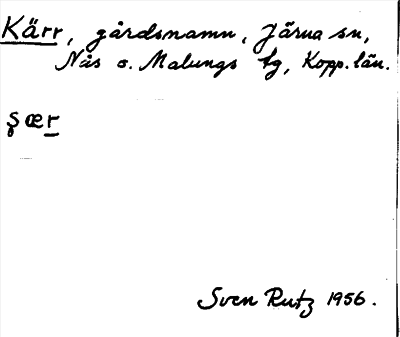 Kärr, gårdsnamn, Järna sn,
Nås o. Malungs tg, Kopp. län.
şær
Sven Rutz 1956.